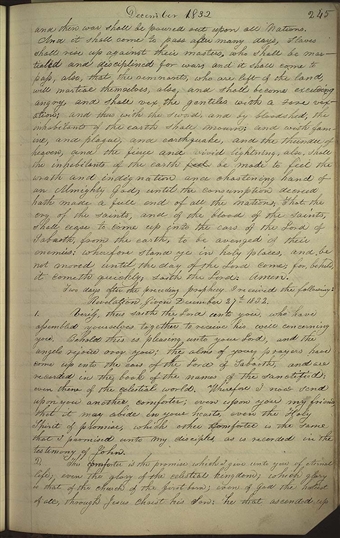 December 1832 245
and then war shall be poured out upon all Nations.
And it shall come to pass after many days, slaves
shall rise up against their masters, who shall be mar-
shaled and disciplined for war: and it shall come to
pass, also, that the remnants, who are left of the land,
will marshal themselves, also, and shall become exceeding
angry, and shall vex the gentiles with a sore vex-
ation; and thus with the sword, and by bloodshed, the
inhabitants of the earth shall mourn; and with fam-
ine, and plague, and earthquake, and the thunder of
heaven, and the fierce and vivid lightning, also, shall
the inhabitants of the earth be made to feel the
wrath and indignation and chastening hand of
an Almighty God, until the consumption decreed
hath made a full end of all the nations; that the
cry of the saints, and of the blood of the saints,
shall cease to come up into the ears of the Lord of
Sabaoth, from the earth, to be avenged of their
enemies: wherefore stand ye in holy places, and be
not moved until the day of the Lord comes for, behold,
it cometh quickly, saith the Lord.
Two days after the preceding prophecy I received the following:
Revelation given December 27th 1832.
1. Verily, thus saith the Lord unto you, who have
assembled yourselves together to receive his will concerning
you. Behold this is pleasing unto your Lord, and the
angels rejoice over you; the alms of your prayers have
come up into the ears of the Lord of Sabaoth, and are
recorded in the book of the names of the sanctified,
even them of the celestial world. Wherefore I now send
upon you another comforter; even upon you my friends
that it may abide in your hearts, even the Holy
Spirit of promise; which other comforter is the same
that I promised unto my disciples, as is recorded in the
testimony of John.
2. This comforter is the promise which I give unto you of eternal
life, even the glory of the celestial kingdom; which glory
is that of the church of the first born; even of God the holiest
of all, through Jesus Christ his Son: he that ascended up